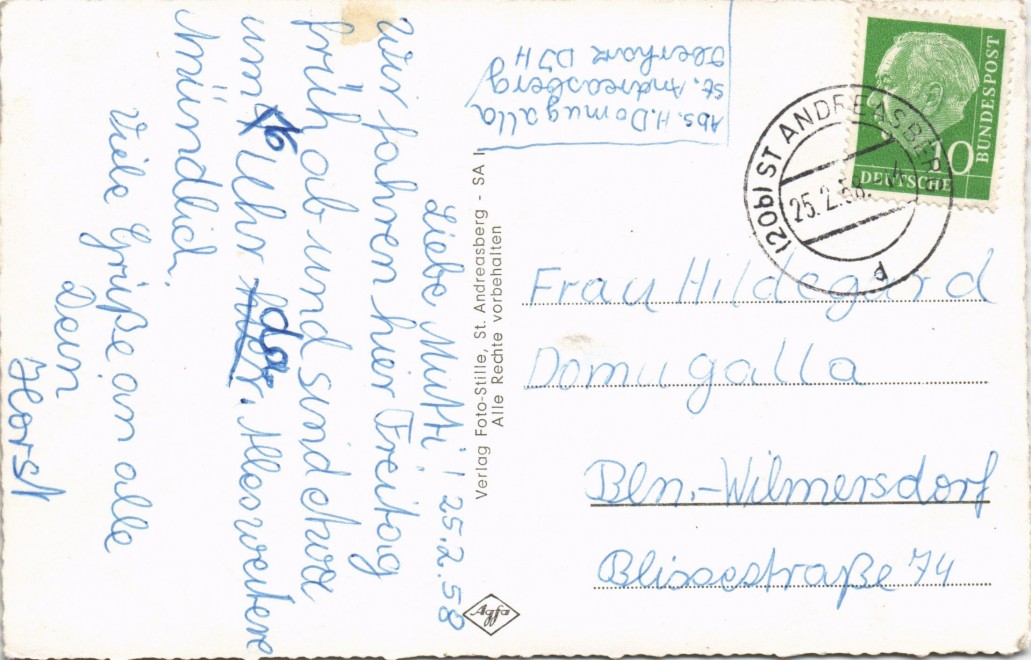 Liebe Mutti! 25.2.58
Wir fahren hier Freitag
früh ab und sind etwa
um 16 Uhr da. Alles weitere
Mündlich.
Viele Grüße an alle
Dein
Horst
Abs. H. Domugalla
St. Andreasberg
Oberharz DJH
Verlag Foto-Stille, St. Andreasberg - SA I
Alle Rechte vorbehalten
Agfa
DEUTSCHE
BUNDESPOST
10
(20b) ST ANDREASBER
25.2.58.
Frau Hildegard
Domugalla
Bln.-Wilmersdorf
Blissestraße 74